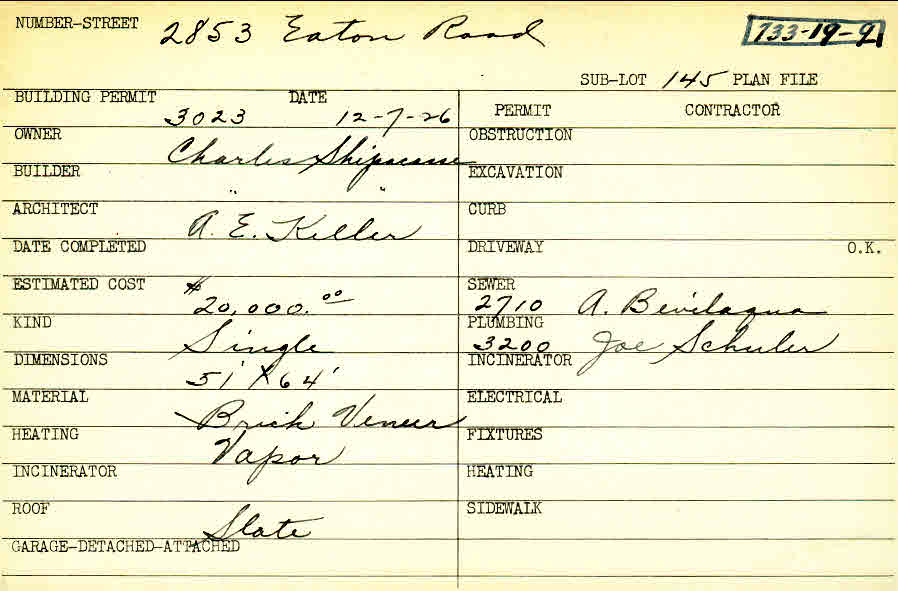 NUMBER-STREET 2853 Eaton Road 733-19-9
SUB-LOT 145 PLAN FILE
BUILDING PERMIT 3023 DATE 12-7-26
PERMIT CONTRACTOR
OWNER Charles
OBSTRUCTION
BUILDER " "
EXCAVATION
ARCHITECT A. E. Keller
CURB
DATE COMPLETED
DRIVEWAY O.K.
ESTIMATED COST $20,000.00
SEWER 2710 A. Bevilaqua
KIND Single
PLUMBING 3200 Joe Schuler
DIMENSIONS 51' X 64'
INCINERATOR
MATERIAL Brick Veneer
ELECTRICAL
HEATING Vapor
FIXTURES
INCINERATOR
HEATING
ROOF Slate
SIDEWALK
GARAGE-DETACHED-ATTACHED